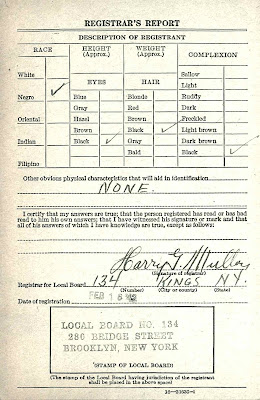 REGISTRAR'S REPORT
DESCRIPTION OF REGISTRANT
RACE HEIGHT (Approx.) WEIGHT (Approx.) COMPLEXION
White Sallow
EYES HAIR Light
Negro ✓ Blue Blonde Ruddy
Gray Red Dark
Oriental Hazel Brown Freckled
Brown Black ✓ Light brown
Indian Black ✓ Gray Dark brown
Bald Black ✓
Filipino
Other obvious physical characteristics that will aid in identification
NONE.
I certify that my answers are true; that the person registered has read or has had
read to him his own answers; that I have witnessed his signature or mark and that
all of his answers of which I have knowledge are true, except as follows:
Harry G.
(Signature of registrar)
Registrar for Local Board 134 KINGS N.Y.
(Number) (City or county) (State)
Date of registration FEB 16 42
LOCAL BOARD NO. 134
286 BRIDGE STREET
BROOKLYN, NEW YORK
(STAMP OF LOCAL BOARD)
(The stamp of the Local Board having jurisdiction of the registrant
shall be placed in the above space)